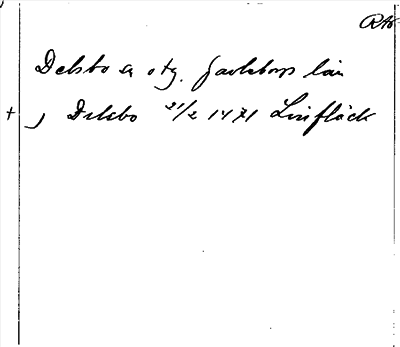 RA8
Delsbo sn o tg. Gävleborgs län
+ , Delsbo 21/2 1471 Linfläck